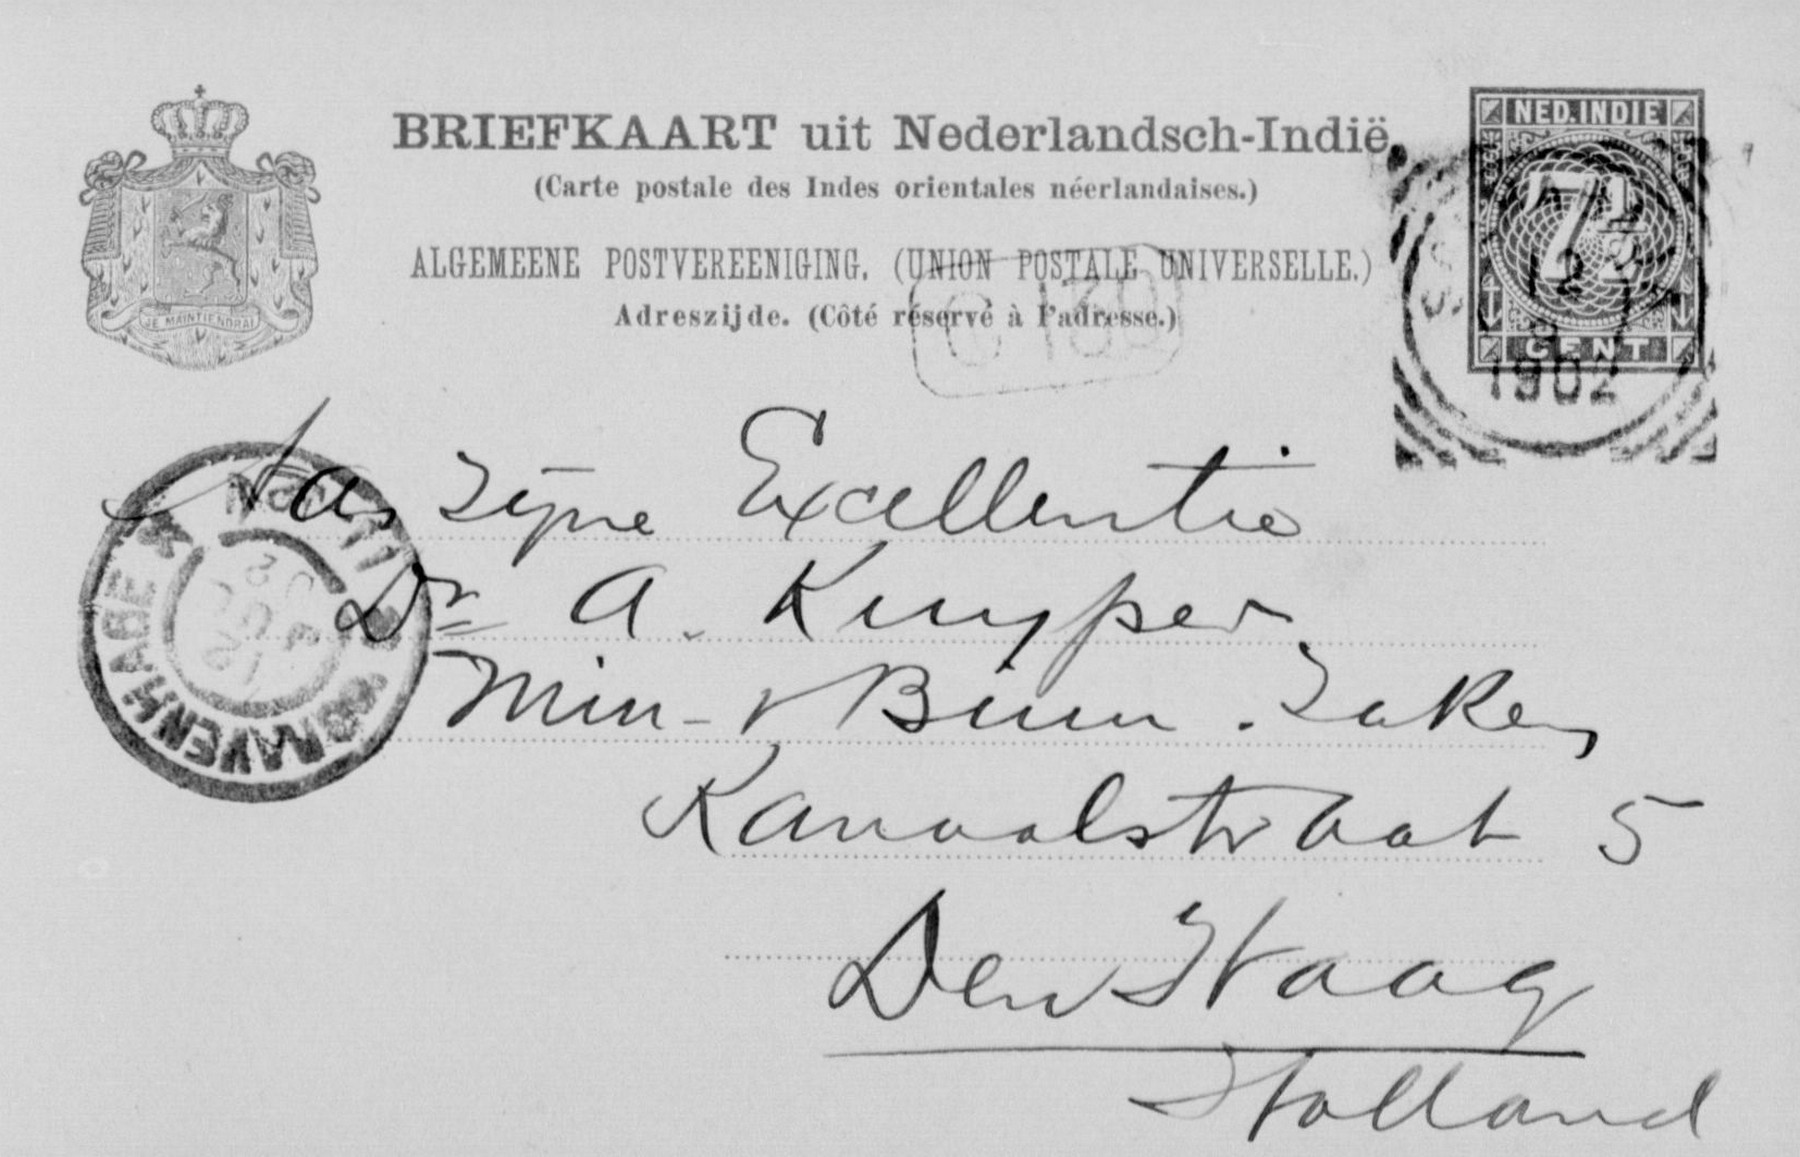 BRIEFKAART uit Nederlandsch-Indië.
(Carte postale des Indes orientales néerlandaises.)
ALGEMEENE POSTVEREENIGING. (UNION POSTALE UNIVERSELLE.)
Adreszijde. (Côté réservé à l'adresse.)
JE MAINTIENDRAI
NED. INDIE
7½
CENT
1902
C 130
Aan Zijne Excellentie
Dr A. Kuyper
Min - v Binn. Zaken
Kanaalstraat 5
Den Haag
Holland
'S GRAVENHAGE